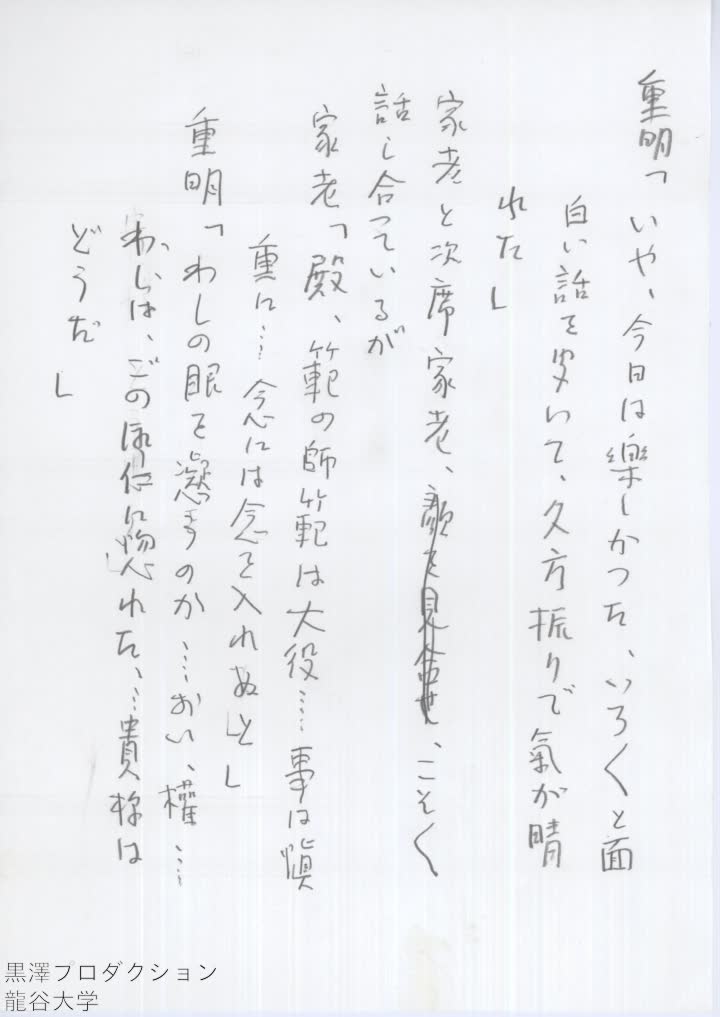 重明「いや、今日は楽しかった、いろ〱と面
白い話を聞いて、久方振りで氣が晴
れた」
家老と次席家老、顔を見合せ、こそ〱
話し合っているが
家老「殿、範の師範は大役……事は愼
重に……念には念を入れぬと」
重明「わしの眼を疑うのか……おい、權……
わしは、この浪人に惚れた、……貴様は
どうだ」
黒澤プロダクション
龍谷大学